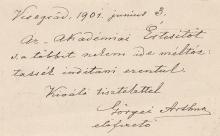 Visegrád, 1901. junius 3.
Az Akadémiai Értesitőt
s a többit nelem ide méltóz-
tassék inditani ezentul.
Kiváló tisztelettel
Görgei Arthur
előfizető